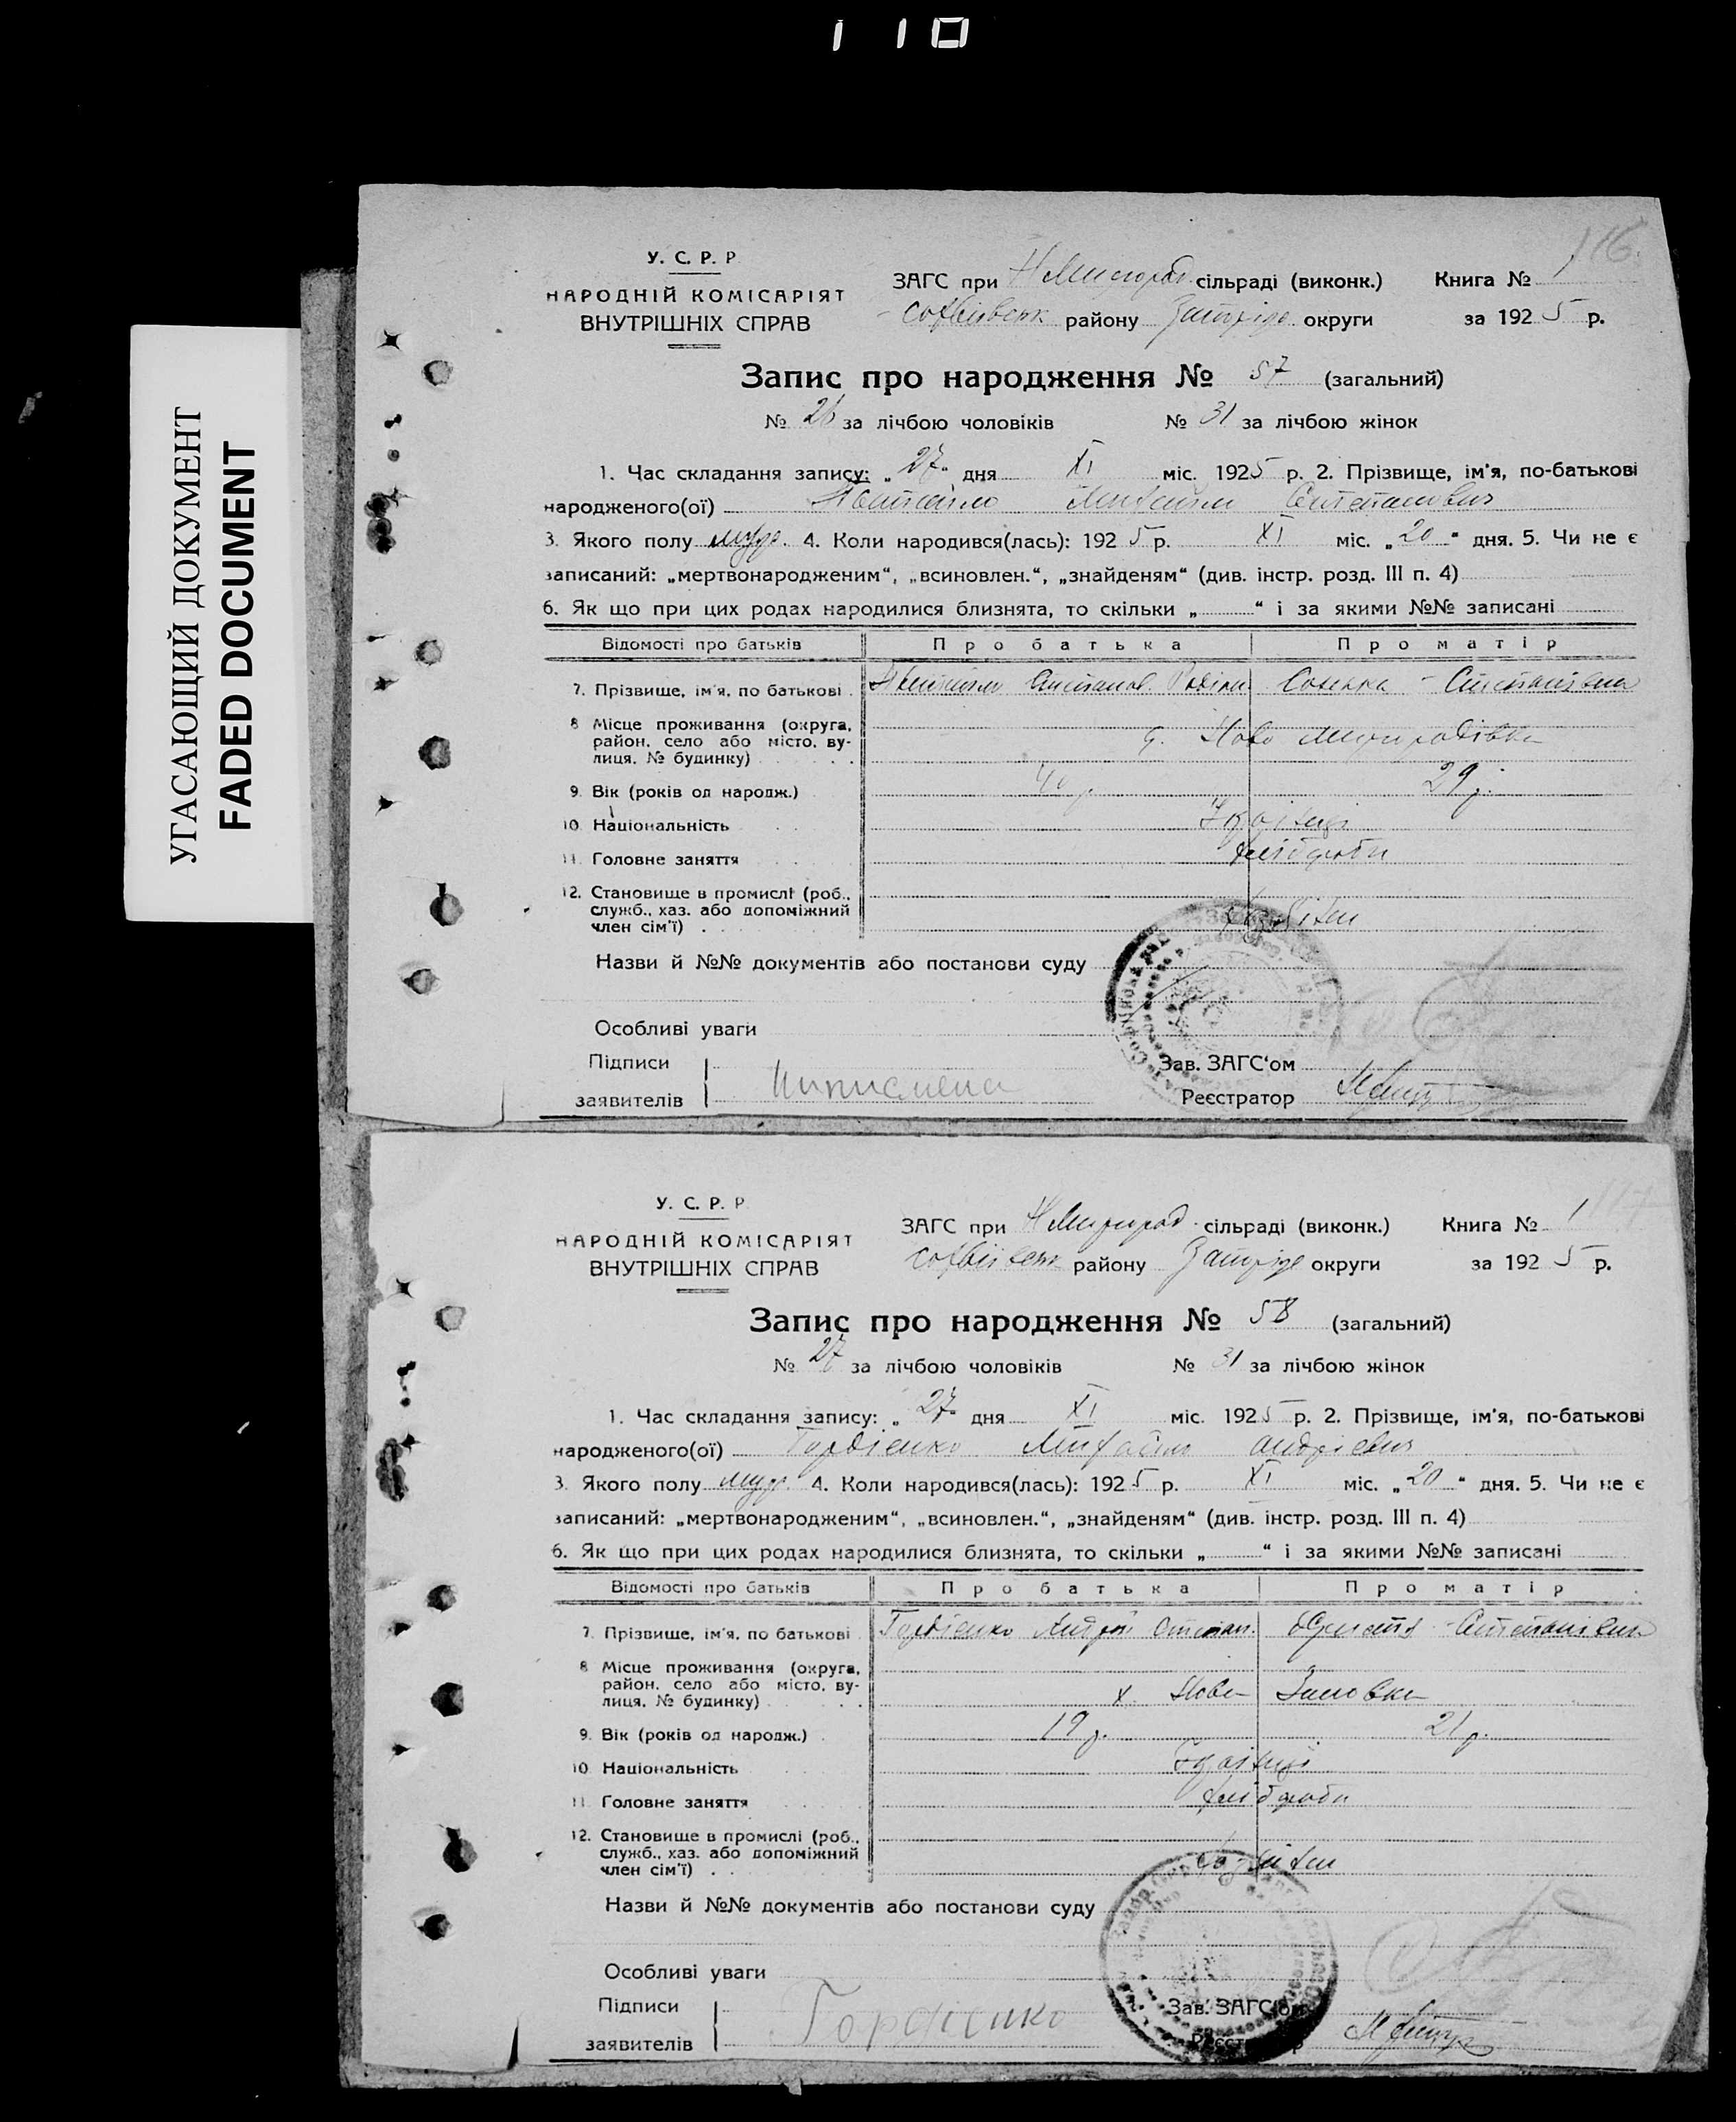 110
УГАСАЮЩИЙ ДОКУМЕНТ
FADED DOCUMENT
116
У. С. Р. Р
НАРОДНІЙ КОМІСАРІЯТ
ВНУТРІШНІХ СПРАВ
ЗАГС при Н Миргород. сільраді (виконк.) Книга № 1
району Запоріз. округи за 1925 р.
Запис про народження № 57 (загальний)
№ 26 за лічбою чоловіків № 31 за лічбою жінок
1. Час складання запису: „27“ дня XI міс. 1925 р. 2. Прізвище, ім'я, по-батькові
народженого(ої) Михайло Степанович
3. Якого полу муж. 4. Коли народився(лась): 1925 р. XI міс. „20“ дня. 5. Чи не є
записаний: „мертвонародженим“, „всиновлен.“, „знайденям“ (див. інстр. розд. III п. 4)
6. Як що при цих родах народилися близнята, то скільки „ “ і за якими №№ записані
Відомості про батьків Про батька Про матір
7. Прізвище, ім'я, по батькові Степанівна
8 Місце проживання (округа,
район, село або місто, ву-
лиця, № будинку) Ново Миргородівка
9. Вік (років од народж.) 40 р. 29 р.
10 Національність Українці
11. Головне заняття хлібороби
12. Становище в промислі (роб.,
служб., хаз. або допоміжний
член сім'ї)
Назви й №№ документів або постанови суду
Особливі уваги
Підписи
заявителів Неписмена
Зав. ЗАГС'ом
Реєстратор
117
У. С. Р. Р
НАРОДНІЙ КОМІСАРІЯТ
ВНУТРІШНІХ СПРАВ
ЗАГС при Н Миргород. сільраді (виконк.) Книга № 1
району Запоріз округи за 1925 р.
Запис про народження № 58 (загальний)
№ 27 за лічбою чоловіків № 31 за лічбою жінок
1. Час складання запису: „27“ дня XI міс. 1925 р. 2. Прізвище, ім'я, по-батькові
народженого(ої) Гордієнко Михайло Андрієвич
3. Якого полу муж. 4. Коли народився(лась): 1925 р. XI міс. „20“ дня. 5. Чи не є
записаний: „мертвонародженим“, „всиновлен.“, „знайденям“ (див. інстр. розд. III п. 4)
6. Як що при цих родах народилися близнята, то скільки „ “ і за якими №№ записані
Відомості про батьків Про батька Про матір
7. Прізвище, ім'я, по батькові Гордієнко Андрій Степан. Степанівна
8 Місце проживання (округа,
район, село або місто, ву-
лиця, № будинку) х.
9. Вік (років од народж.) 19 р. 21 р.
10 Національність Українці
11. Головне заняття хлібороби
12. Становище в промислі (роб.,
служб., хаз. або допоміжний
член сім'ї)
Назви й №№ документів або постанови суду
Особливі уваги
Підписи
заявителів Гордієнко
Зав. ЗАГС'ом
Реєстратор